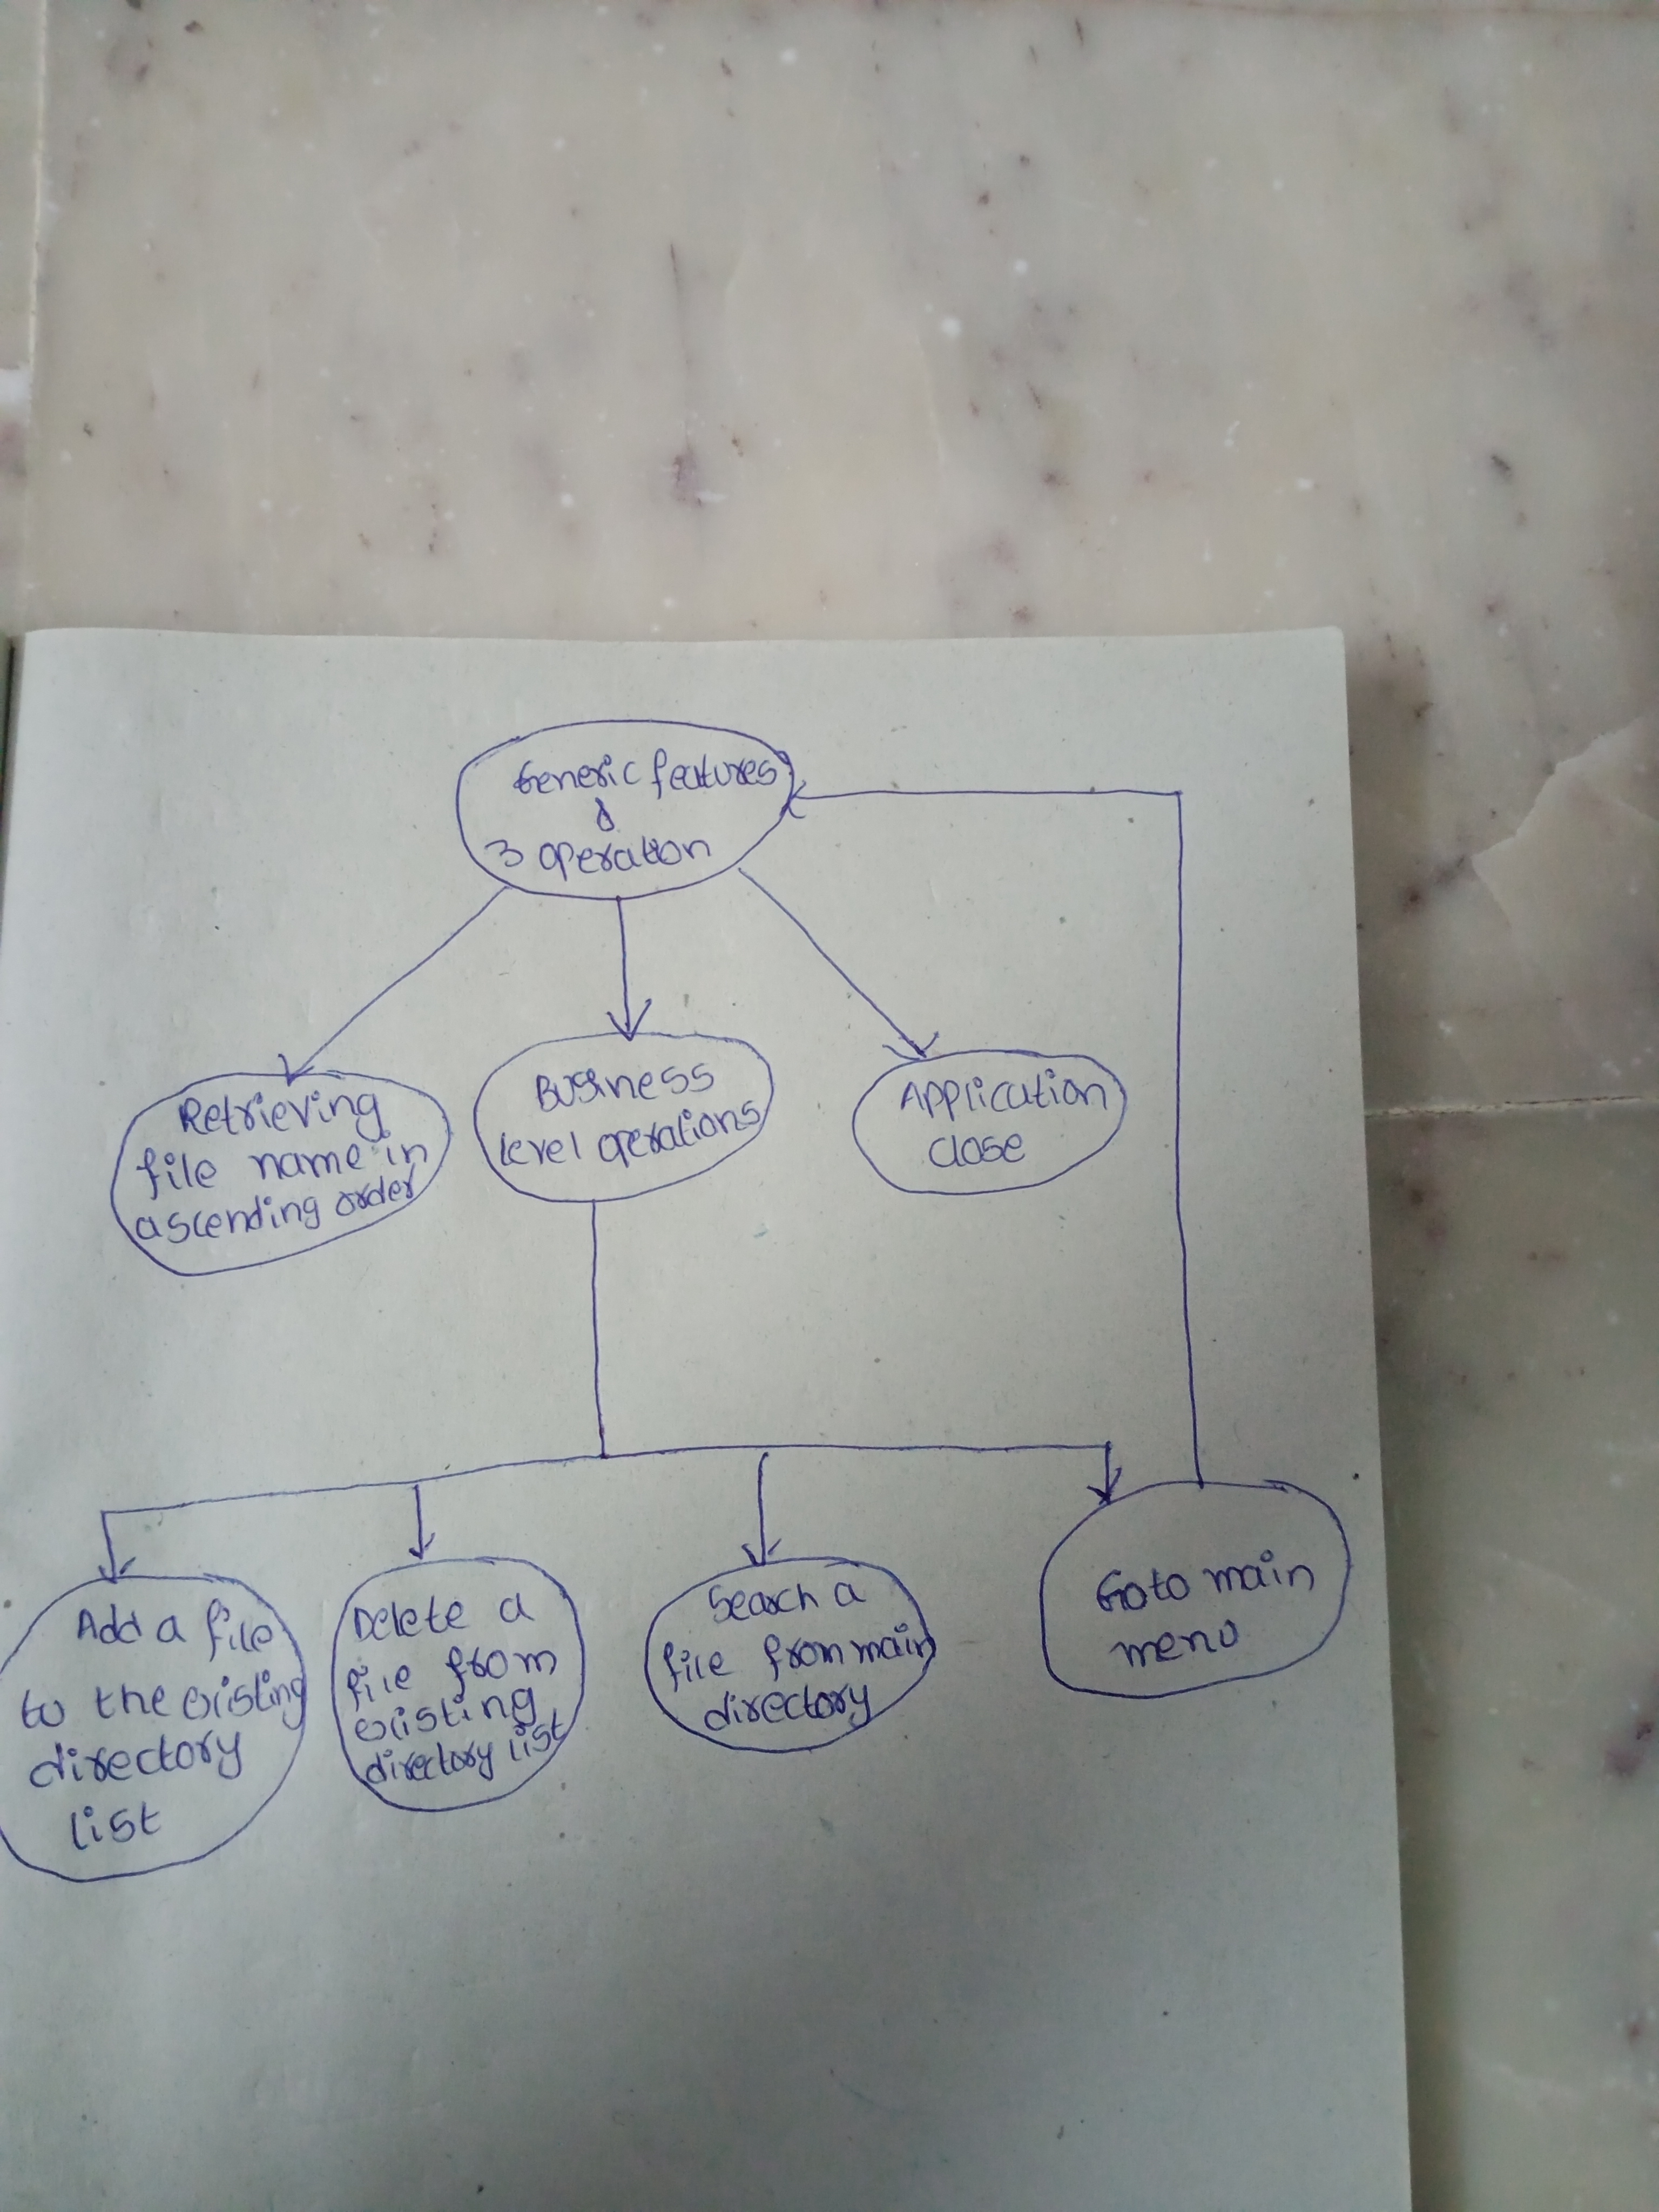 Generic features
&
3 operation
Retrieving
file name in
ascending order
Business
level operations
Application
close
Add a file
to the existing
directory
list
Delete a
file from
existing
directory list
Search a
file from main
directory
Goto main
menu